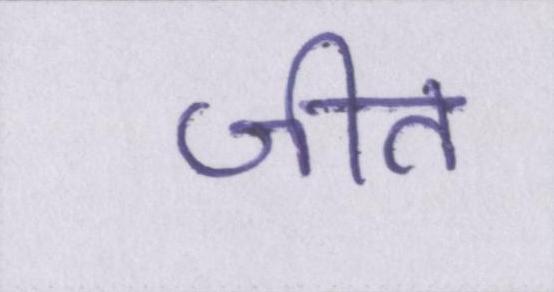 जीत